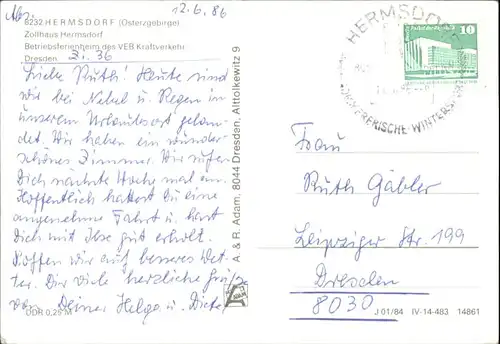 Abs. 12.6.86
8232 HERMSDORF (Osterzgebirge)
Zollhaus Hermsdorf
Betriebsferienheim des VEB Kraftverkehr
Dresden Zi. 36
Liebe Ruth! Heute sind
wir bei Nebel u. Regen in
unserem Urlaubsort gelan-
det. Wir haben ein wunder-
schönes Zimmer. Wir rufen
Dich nächste Woche mal an.
Hoffentlich hattest Du eine
angenehme Fahrt u. hast
Dich mit Ilse gut erholt.
Hoffen wir auf besseres Wet-
ter. Dir viele herzliche Grüße
von Deiner Helga u. Dieter
DDR 0,25 M
A. & R. Adam, 8044 Dresden, Alttolkewitz 9
HERMSDORF
WINTERSPORT
10
Frau
Ruth Gäbler
Leipziger Str. 199
Dresden
8030
J 01/84 IV-14-483 14861